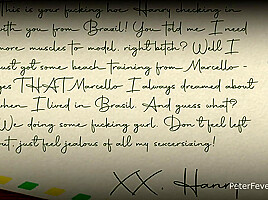 This is your fucking hoe Hanry checking in
with you from Brazil! You told me I need
more muscles to model, right bitch? Well I
just got some beach training from Marcello -
yes THAT Marcello I always dreamed about
when I lived in Brasil. And guess what?
We doing some fucking gurl. Don't feel left
out, just feel jealous of all my sexersizing!
XX. Hanry
PeterFeve